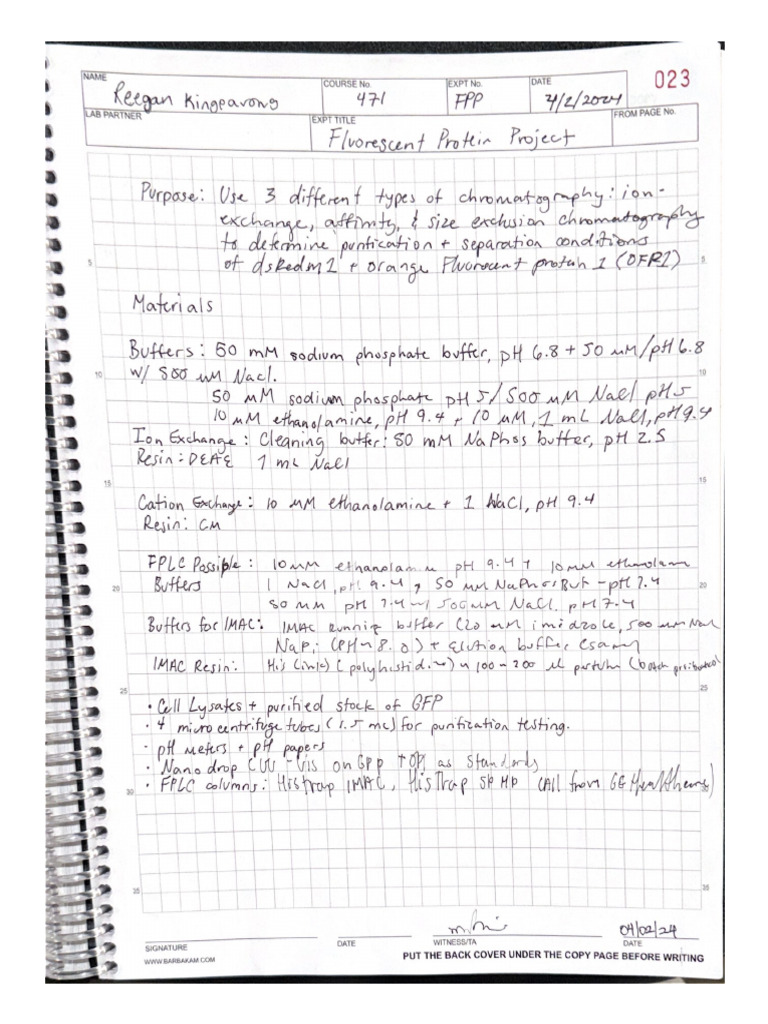 NAME
Reegan Kingpavong
COURSE No.
471
EXPT No.
FPP
DATE
4/2/2024
023
LAB PARTNER
EXPT TITLE
Fluorescent Protein Project
FROM PAGE No.
Purpose: Use 3 different types of chromatography: ion-
exchange, affinity, & size exclusion chromatography
to determine purification + separation conditions
of dsRedm1 + orange Fluorescent protein 1 (OFR1)
Materials
Buffers: 50 mM sodium phosphate buffer, pH 6.8 + 50 mM/pH 6.8
w/ 500 mM NaCl.
50 mM sodium phosphate pH 5/500 mM NaCl pH 5
10 mM ethanolamine, pH 9.4 + 10 mM, 1 mL NaCl, pH 9.4
Ion Exchange: Cleaning buffer: 50 mM NaPhos buffer, pH 2.5
Resin: DEAE 1 mL NaCl
Cation Exchange: 10 mM ethanolamine + 1 NaCl, pH 9.4
Resin: CM
FPLC Possible: 10mM ethanolamine pH 9.4 + 10mM ethanolam
Buffers 1 NaCl, pH 9.4, 50 mM NaPhos Buf - pH 7.4
50 mM pH 7.4 w/ 500mM NaCl. pH 7.4
Buffers for IMAC: IMAC Running buffer (20 mM imidzole, 500 mM NaCl
NaPi (pH ~ 8.0) + Elution buffer
IMAC Resin: His (polyhistid.) ~ 100-200 μl
• Cell Lysates + purified stock of GFP
• 4 microcentrifuge tubes (1.5 mL) for purification testing.
• pH meters + pH papers
• Nanodrop (UV-Vis on GFP as Standards
• FPLC columns: HisTrap IMAC, HisTrap SP HP (All from GE Healthcare)
5
10
15
20
25
30
35
5
10
15
20
25
30
35
04/02/24
SIGNATURE
DATE
WITNESS/TA
DATE
WWW.BARBAKAM.COM
PUT THE BACK COVER UNDER THE COPY PAGE BEFORE WRITING